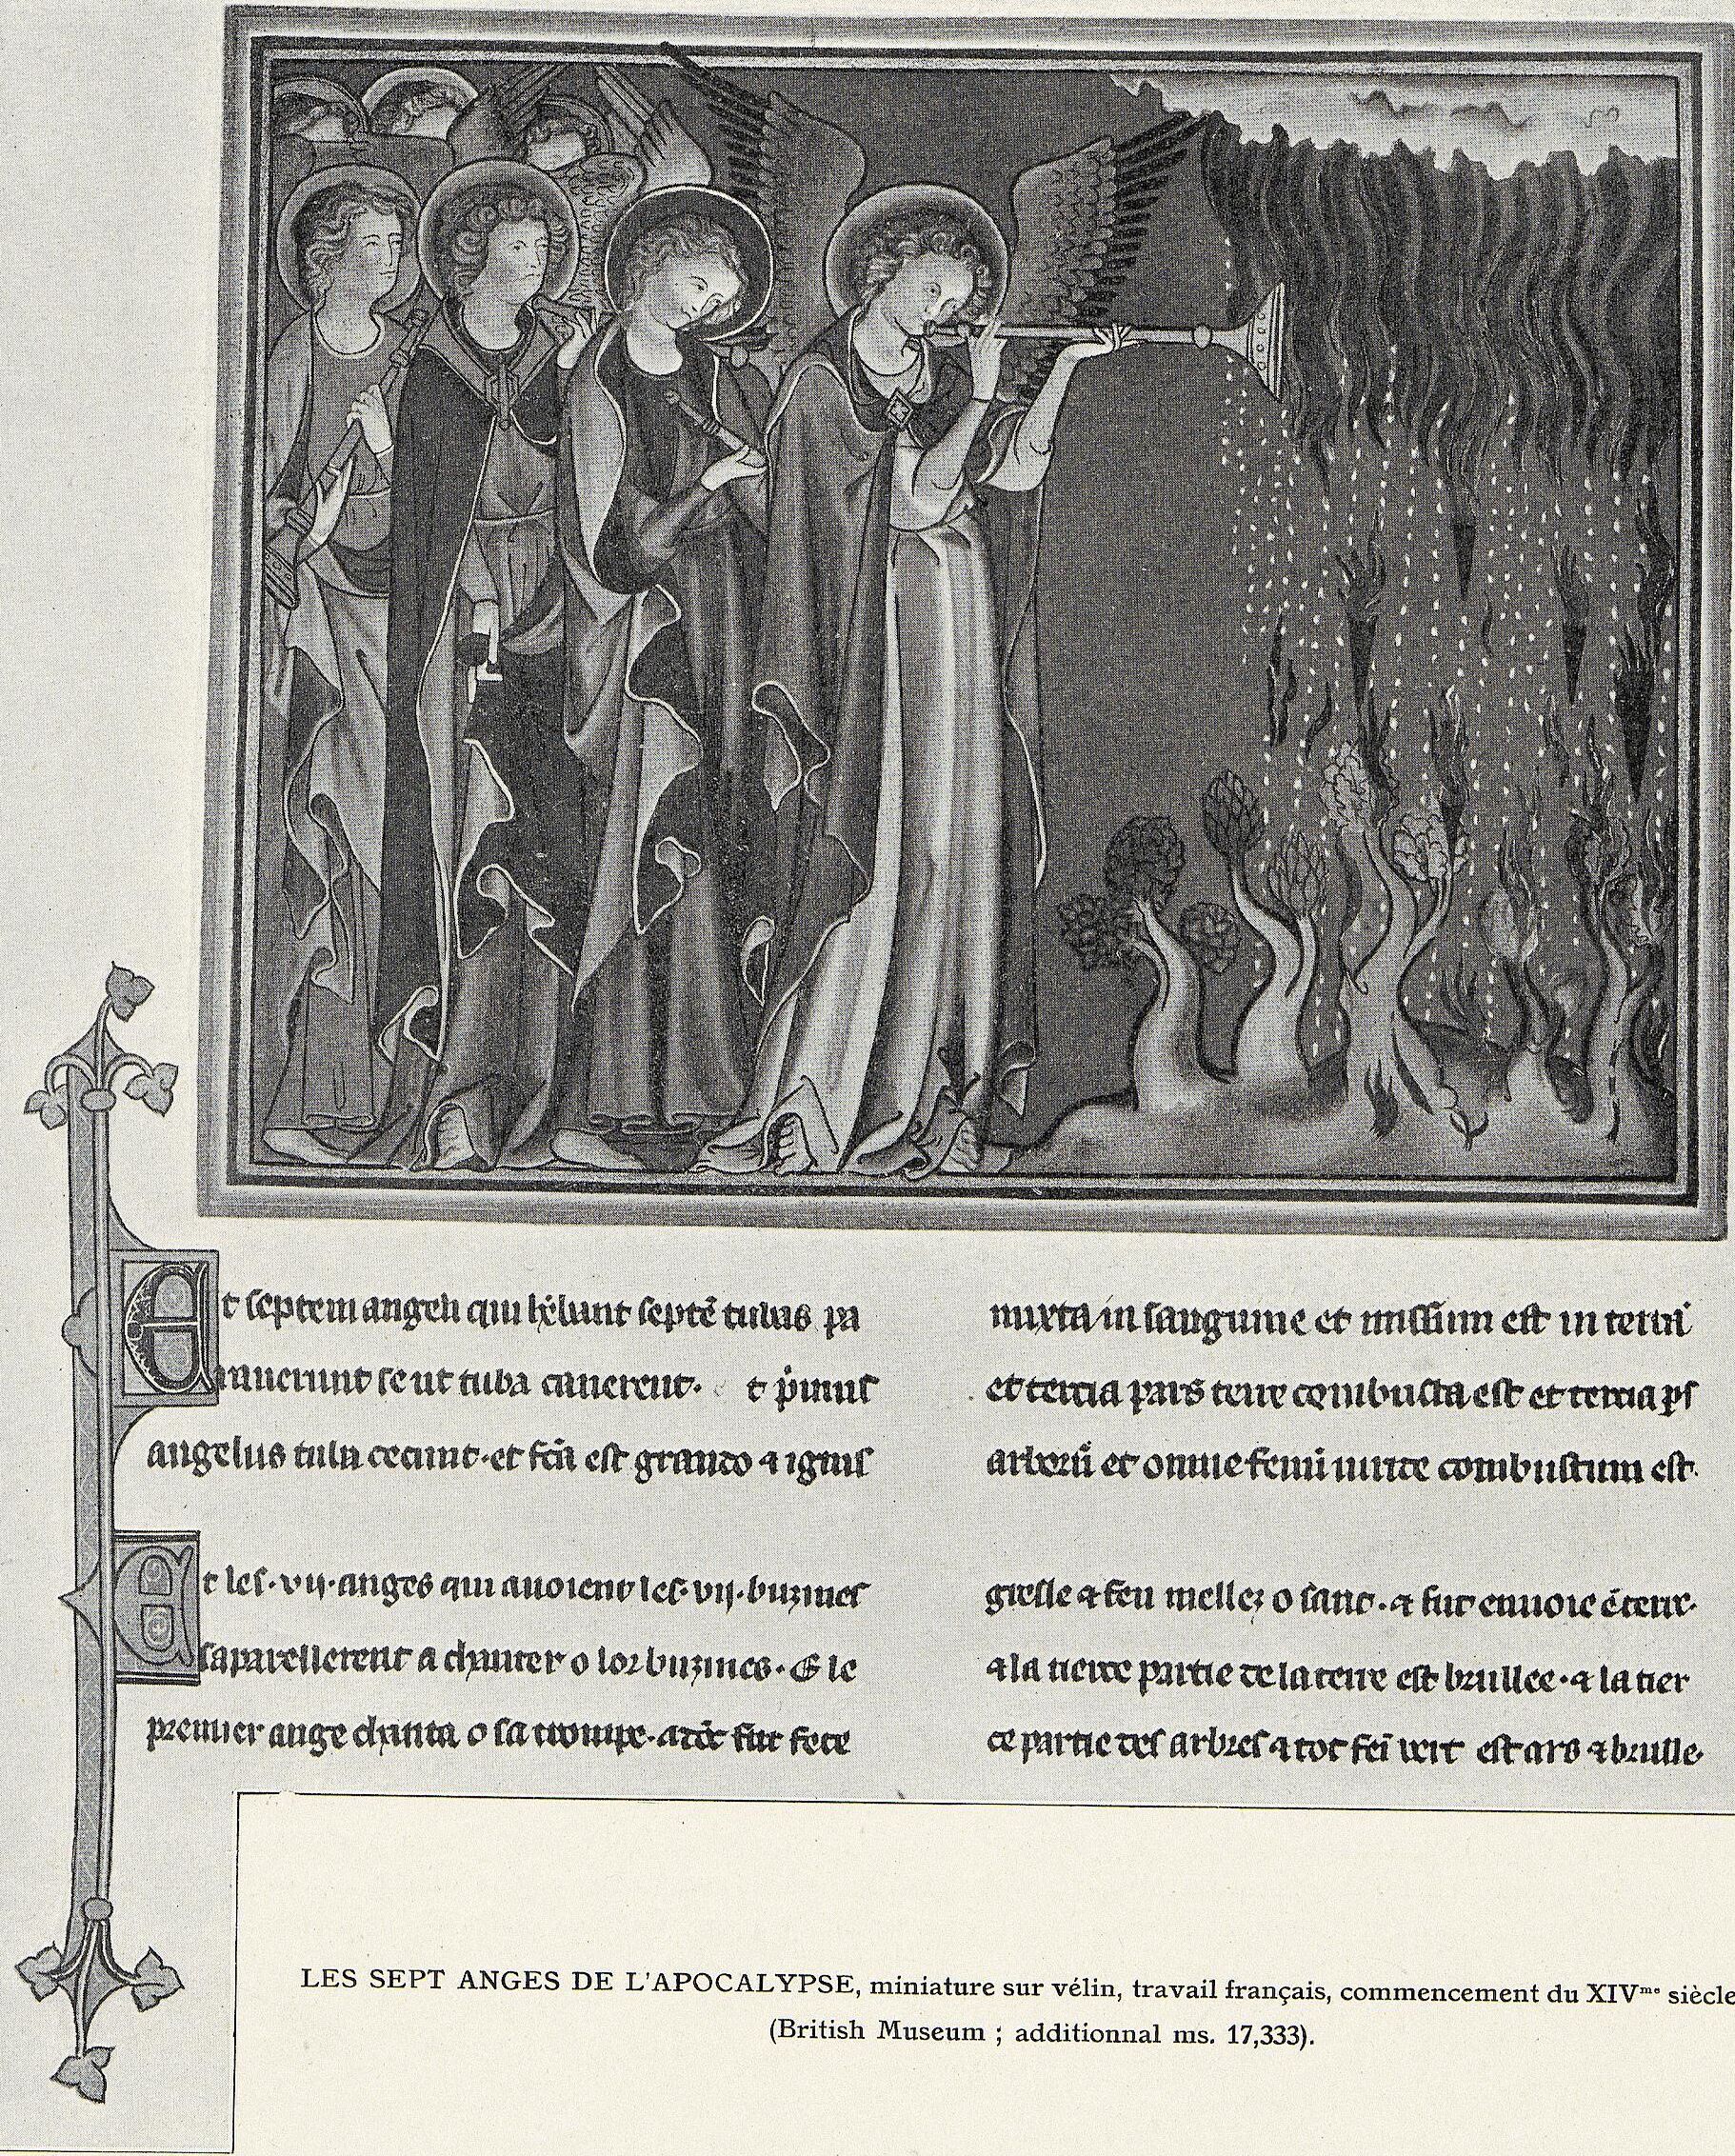 Et septem angeli qui hēbunt septē tubas pa
rauerunt se ut tuba canerent. et p̓mus
angelus tuba cecinit. et fc̄a est grando ⁊ ignis
mixta in sanguine et missum est in terrā
et tercia pars terre combusta est et tercia ps
arborū et omne fenū uiride combustum est.
Et les .vij. anges qui auoient les .vij. buzines
saparellerent a chanter o lor buzines. E le
premier ange chanta o sa trompe. ⁊ fut fete
grelle ⁊ feu mellez o sanc. ⁊ fut enuoie ē terre.
⁊ la tierce partie de la terre est brullee. ⁊ la tier
ce partie des arbres ⁊ tot fein vert est ars ⁊ brulle.
LES SEPT ANGES DE L'APOCALYPSE, miniature sur vélin, travail français, commencement du XIVme siècle
(British Museum ; additionnal ms. 17,333).